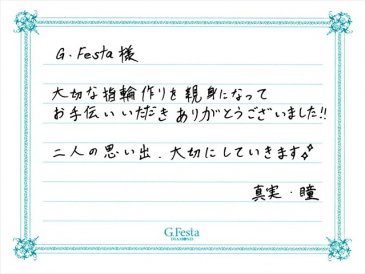 G.Festa 様
大切な指輪作りを親身になって
お手伝いいただきありがとうございました!!
二人の思い出、大切にしていきます
真実・瞳
G.Festa
DIAMOND